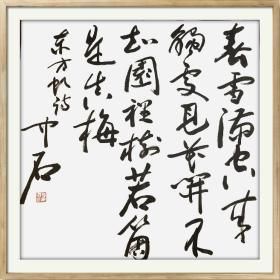 春雪滿空来
觸處見花開不
知園裡樹若箇
是真梅
东方虬诗 中石